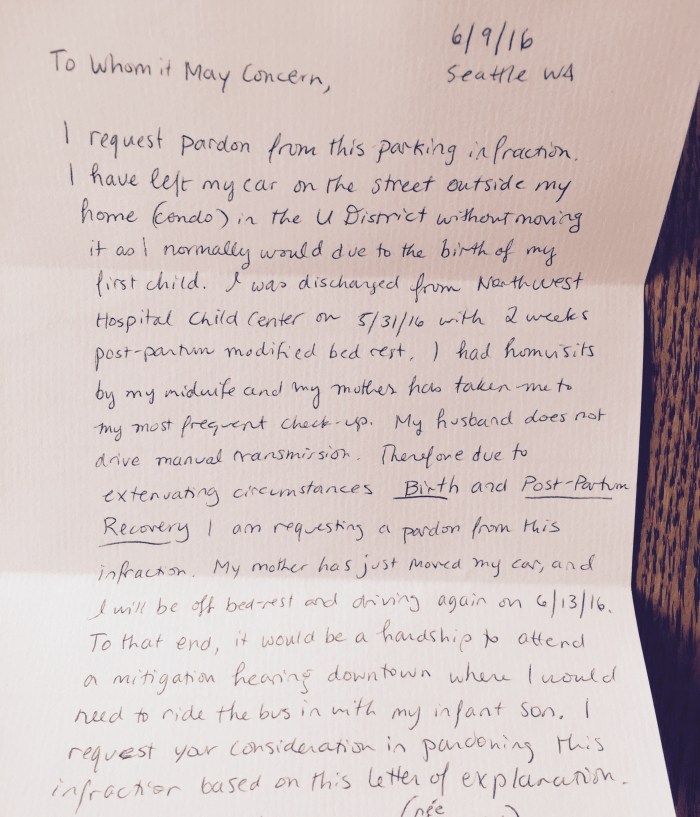 6/9/16
To Whom it May Concern,
Seattle WA
I request pardon from this parking infraction.
I have left my car on the street outside my
home (condo) in the U District without moving
it as I normally would due to the birth of my
first child. I was discharged from Northwest
Hospital Child Center on 5/31/16 with 2 weeks
post-partum modified bed rest. I had homvisits
by my midwife and my mother has taken me to
my most frequent check-up. My husband does not
drive manual transmission. Therefore due to
extenuating circumstances Birth and Post-Partum
Recovery I am requesting a pardon from this
infraction. My mother has just moved my car, and
I will be off bed-rest and driving again on 6/13/16.
To that end, it would be a hardship to attend
a mitigation hearing downtown where I would
need to ride the bus in with my infant son. I
request your consideration in pardoning this
infraction based on this letter of explanation.
(née )